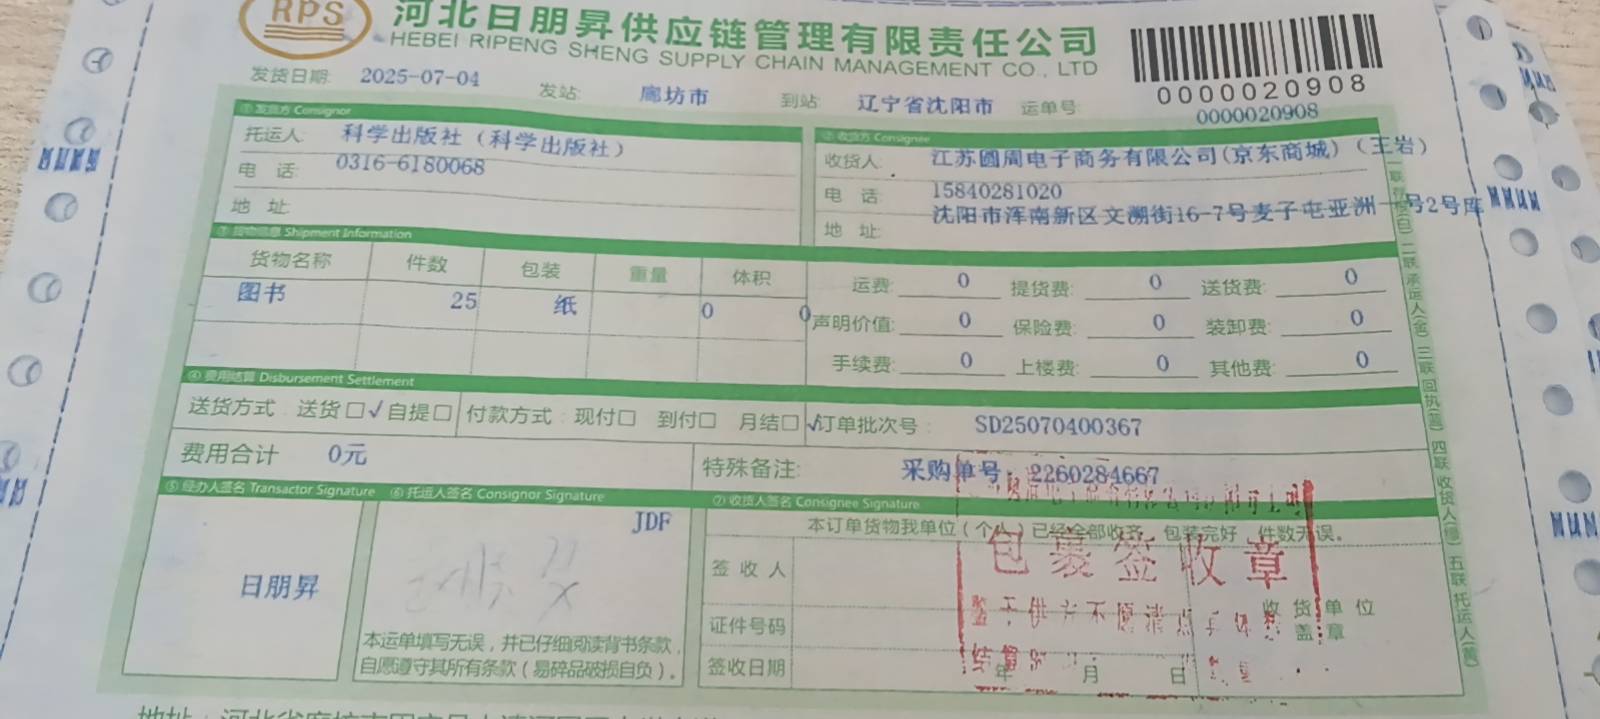 RPS
河北日朋昇供应链管理有限责任公司
HEBEI RIPENG SHENG SUPPLY CHAIN MANAGEMENT CO., LTD
0000020908
发货日期: 2025-07-04 发站: 廊坊市 到站: 辽宁省沈阳市 运单号: 0000020908
① 发货方 Consignor
托运人: 科学出版社（科学出版社）
电 话: 0316-6180068
地 址:
② 收货方 Consignee
收货人: 江苏圆周电子商务有限公司(京东商城)（王岩）
电 话: 15840281020
地 址: 沈阳市浑南新区文溯街16-7号麦子屯亚洲一号2号库
③ 货物信息 Shipment Information
货物名称 件数 包装 重量 体积
图书 25 纸 0 0
运费: 0 提货费: 0 送货费: 0
声明价值: 0 保险费: 0 装卸费: 0
手续费: 0 上楼费: 0 其他费: 0
④ 费用结算 Disbursement Settlement
送货方式: 送货□√自提□ 付款方式: 现付□ 到付□ 月结□√订单批次号: SD25070400367
费用合计 0元 特殊备注: 采购单号: 2260284667
⑤ 经办人签名 Transactor Signature ⑥ 托运人签名 Consignor Signature ⑦ 收货人签名 Consignee Signature
日朋昇
JDF
本运单填写无误，并已仔细阅读背书条款，
自愿遵守其所有条款（易碎品破损自负）。
本订单货物我单位（个人）已经全部收齐，包装完好，件数无误。
签 收 人
证件号码
签收日期 年 月 日
收 货 单 位
盖 章
包裹签收章
二联 承运人(金) 三联 回执(蓝) 四联 收货人(绿) 五联 托运人(黄)